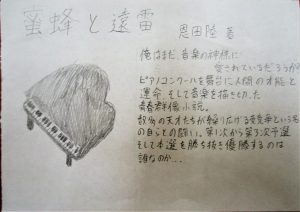 蜜蜂と遠雷
恩田陸 著
俺はまだ、音楽の神様に
愛されているだろうか?
ピアノコンクールを舞台に人間の才能と
運命、そして音楽を描ききった
青春群像小説。
数多の天才たちが繰り広げる競争という名
の自らとの闘い。第1次から第3次予選
そして本選を勝ち抜き優勝するのは
誰なのか…